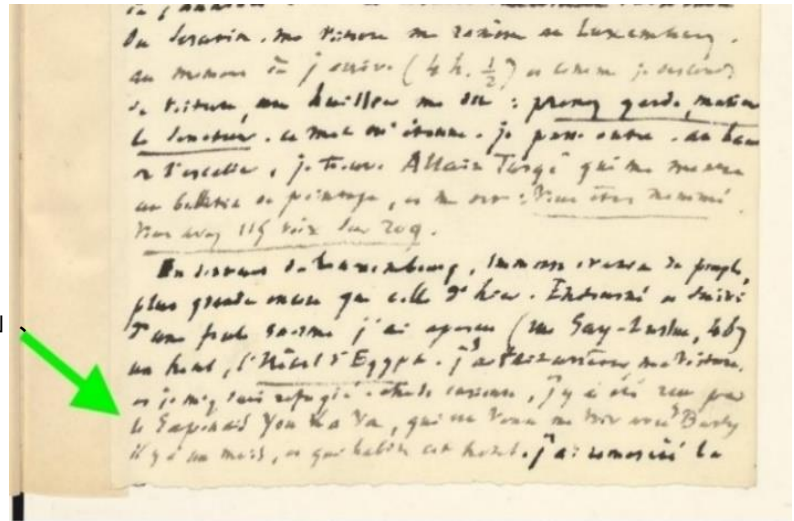 du scrutin. Ma voiture me ramène au Luxembourg.
au moment où j'arrive (4 h. ½) et comme je descends
de voiture, un huissier me dit : prenez garde, monsieur
le Sénateur. ce mot m'étonne. je passe outre. au haut
de l'escalier, je trouve Allain Targé qui me montre
un bulletin de pointage, et me dit : Vous êtes nommé.
Vous avez 115 voix sur 209.
En sortant du Luxembourg, immense ovation du peuple,
plus grande encore que celle d'hier. et suivi
d'une foule énorme j'ai aperçu (rue Gay-Lussac,
en haut, l'Hôtel d'Egypte. j'ai fait arrêter ma voiture,
et je m'y suis réfugié. chose curieuse, j'y ai été reçu par
le Japonais You Ka Va, qui est venu me voir avec Burty
il y a un mois, et qui habite cet hôtel. j'ai remercié la